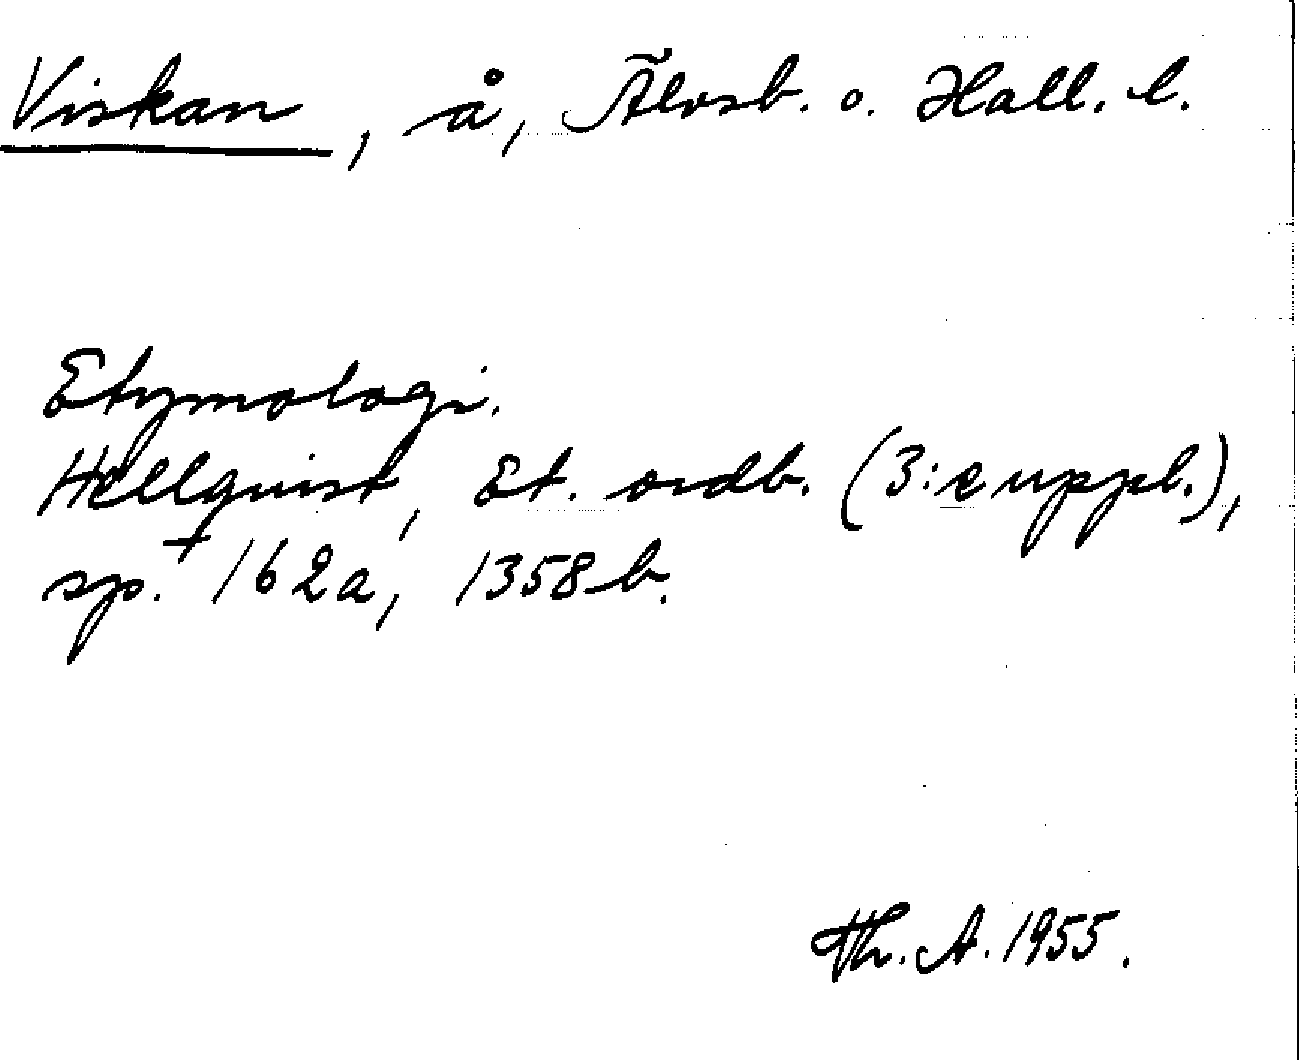 Viskan, å, Älvsb. o. Hall. l.
Etymologi.
Hellquist, Et. ordb. (3:e uppl.),
sp. 162a, 1358 b.
Th. A. 1955.